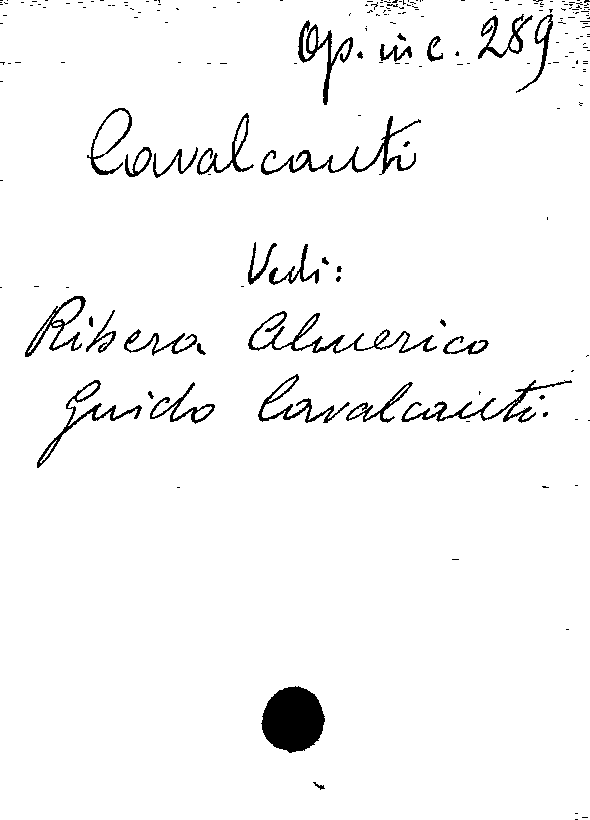 Op. in c. 289
Cavalcanti
Vedi:
Ribera Almerico
Guido Cavalcanti.